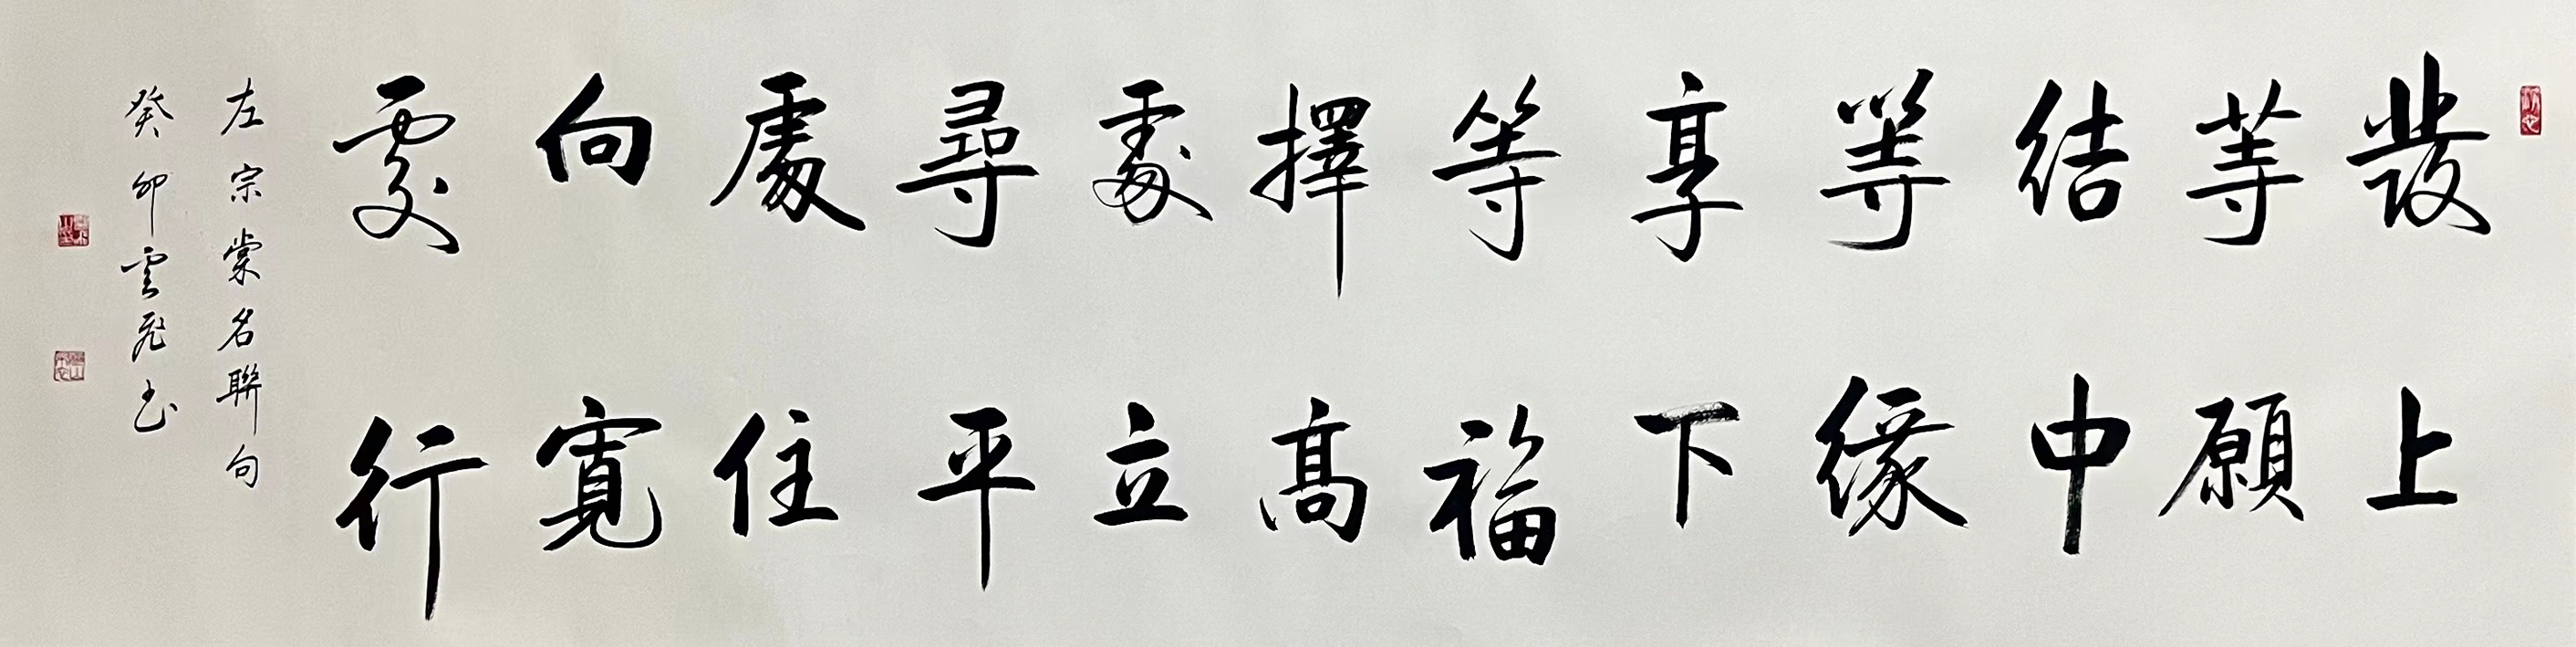 發上
等願
結中
等緣
享下
等福
擇高
處立
尋平
處住
向寬
處行
左宗棠名聯句
癸卯雲飛書